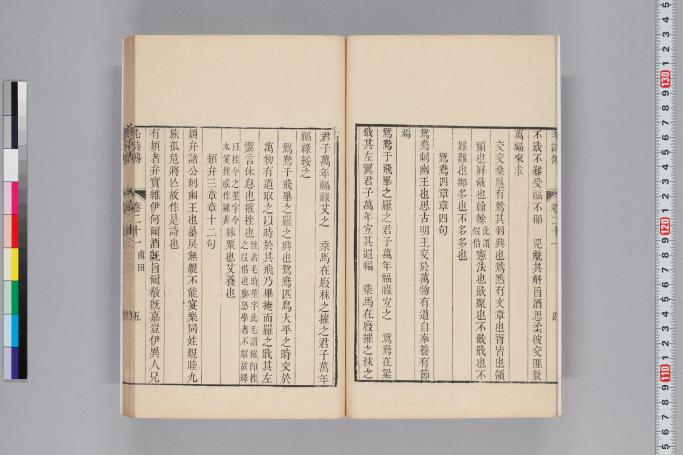 不戢不難受福不那　兕觥其觩旨酒思柔彼交匪敖
萬福來求
交交桑扈有鶯其羽興也鶯然有文章也胥皆也領
頸也屏蔽也翰榦憲法也戢聚也不戢戢也不
難難也那多也不多多也
鴛鴦四章章四句
鴛鴦刺幽王也思古明王交於萬物有道自奉養有節
焉
鴛鴦于飛畢之羅之君子萬年福祿宜之　鴛鴦在梁
戢其左翼君子萬年宜其遐福　乘馬在廄摧之秣之
君子萬年福祿艾之　乘馬在廄秣之摧之君子萬年
福祿綏之
鴛鴦于飛畢之羅之興也鴛鴦匹鳥大平之時交於
萬物有道取之以時於其飛乃畢掩而羅之戢其左
翼言休息也摧挫也
秣粟也艾養也
頍弁三章章十二句
頍弁諸公刺幽王也暴戾無親不能宴樂同姓親睦九
族孤危將亡故作是詩也
有頍者弁實維伊何爾酒既旨爾殽既嘉豈伊異人兄
毛詩傳
卷二十一
甫田
五